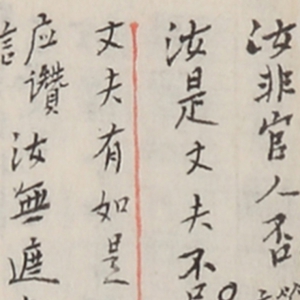 汝非官人否
汝是丈夫不
丈夫有如是
应讚汝無遮